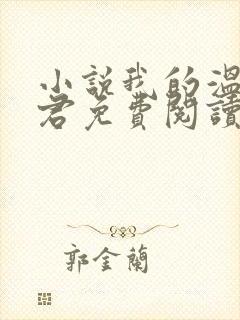 小說我的溫
君免費閱讀
郭金蘭